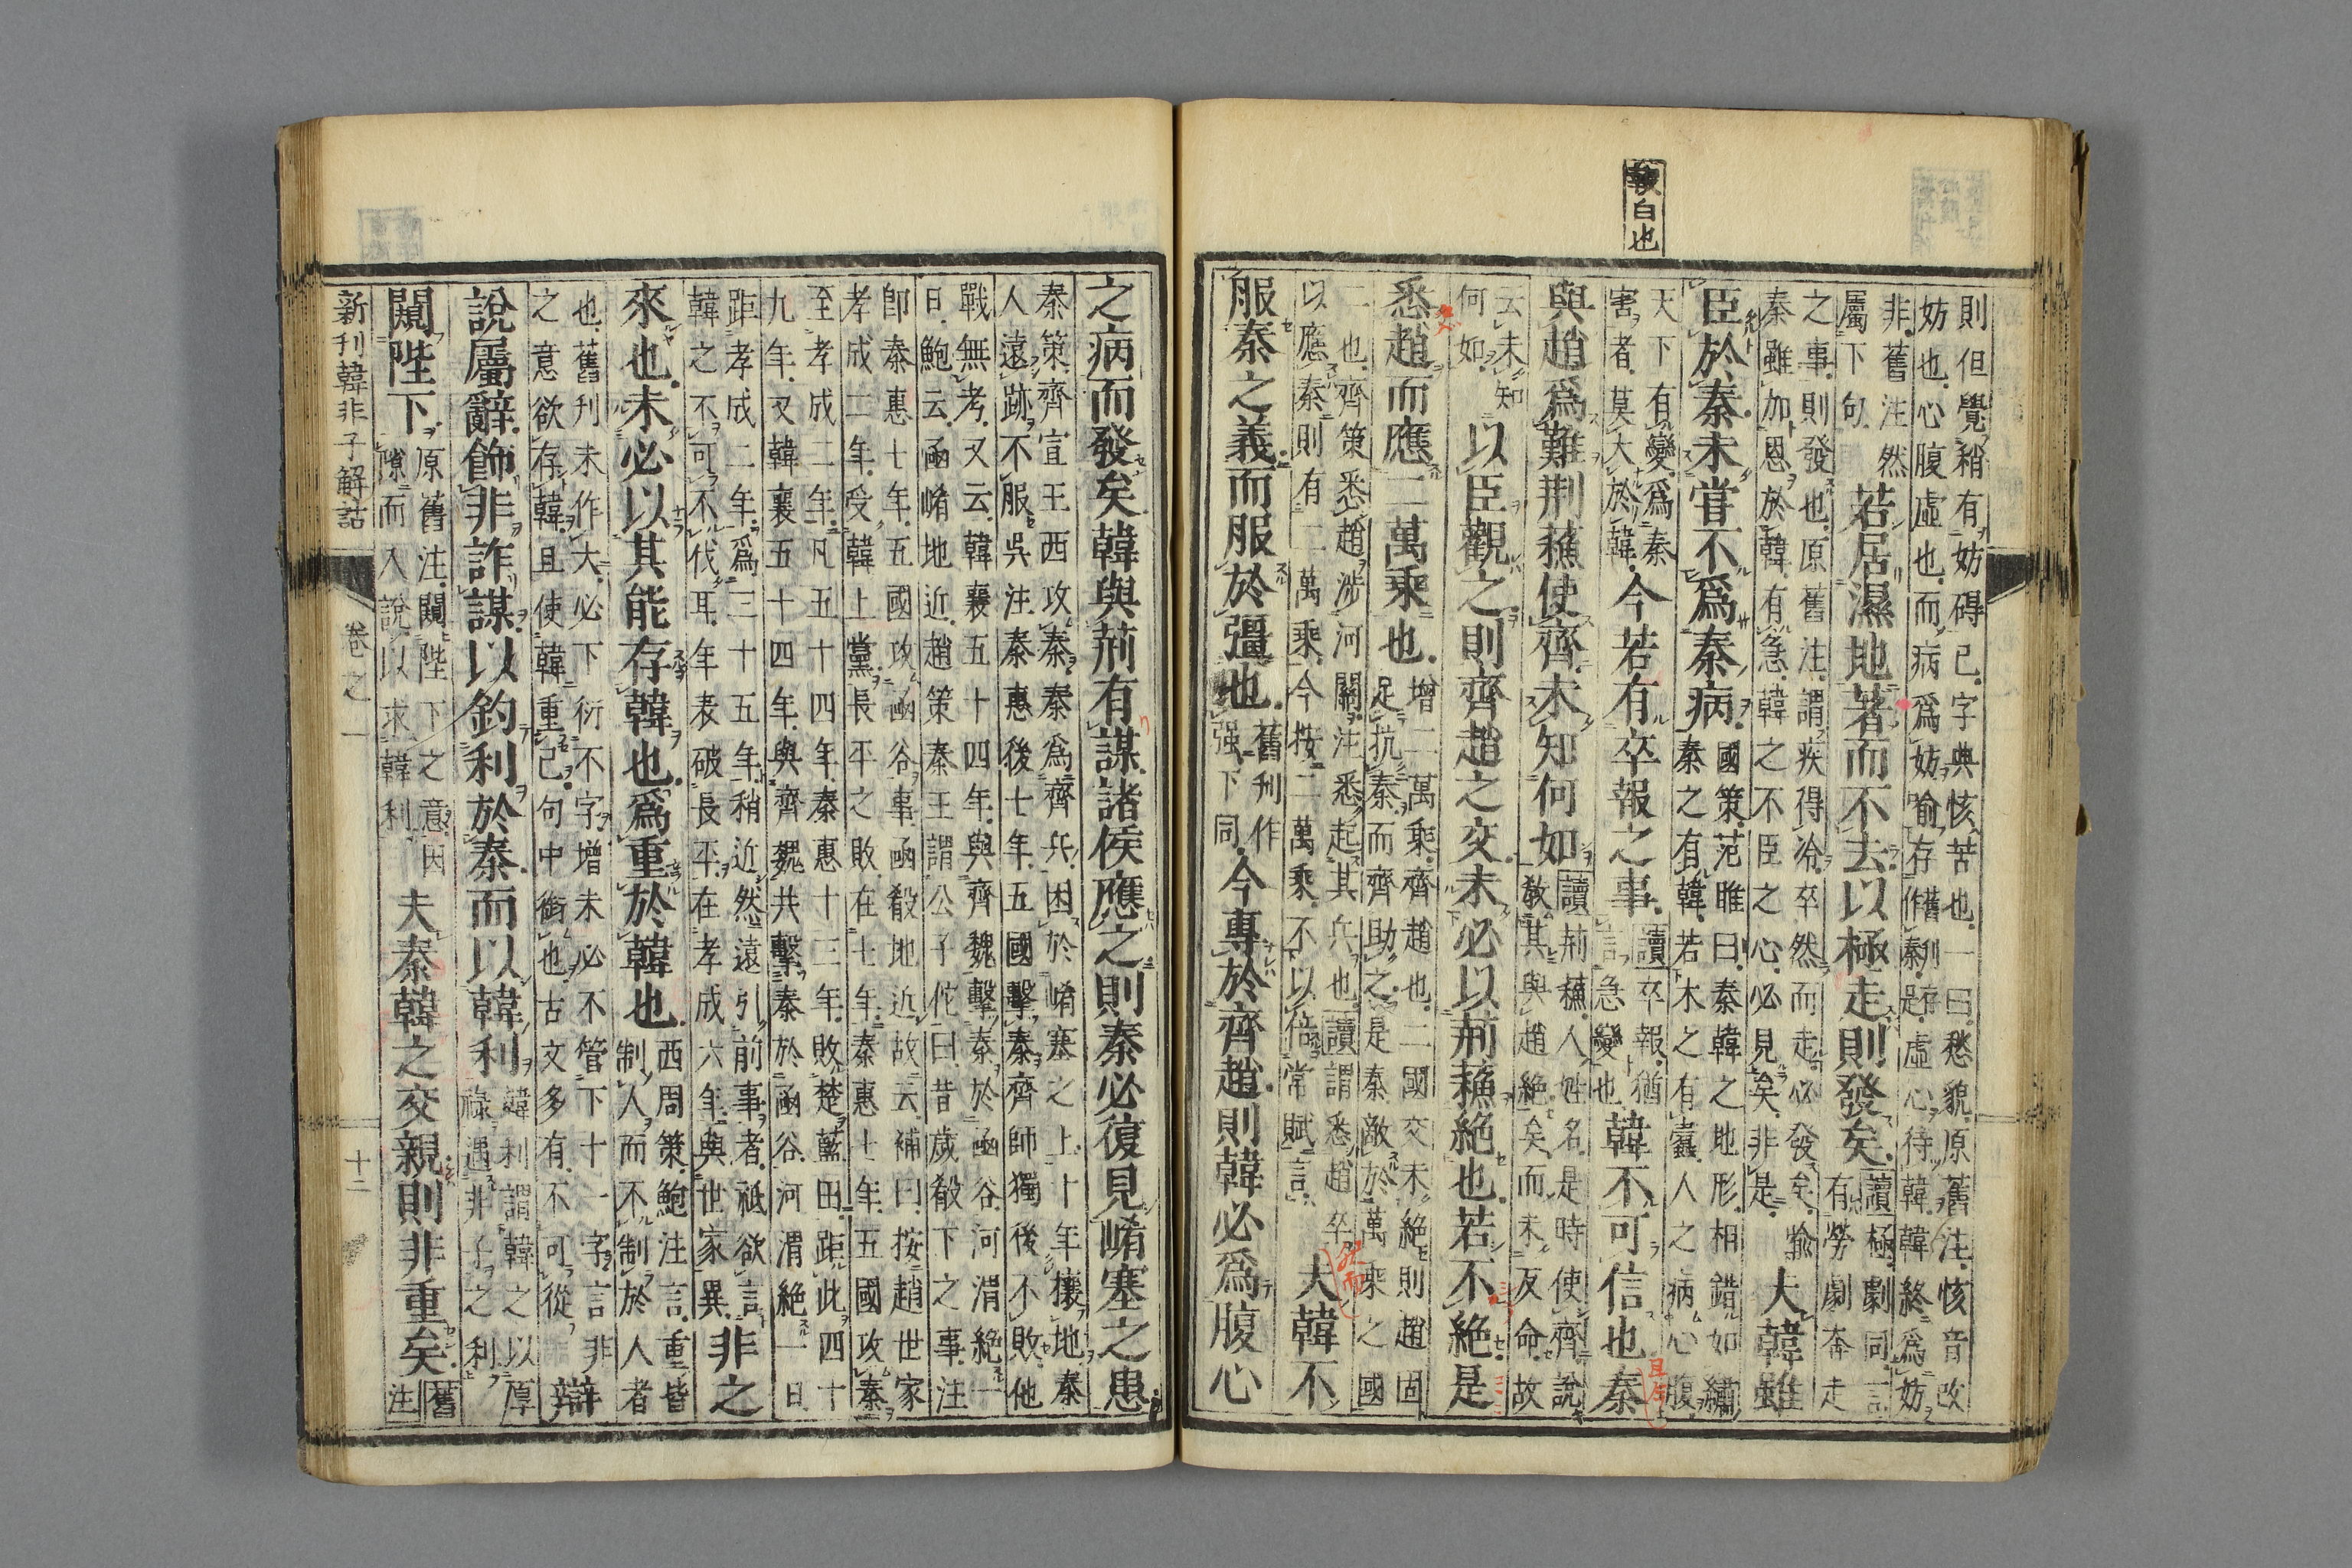 報白也
則但覺稍有妨碍已字典恢苦也一曰愁貌原舊注恢音改
妨也心腹虛也而病爲妨喻存舊刊存作秦是虛心待韓韓終爲妨
非舊注然
屬下句
若居濕地著而不去以極走則發矣
讀極劇同言
有勞劇奔走
之事則發也原舊注謂疾得冷卒然而走必發矣喩
秦雖加恩於韓有急韓之不臣之心必見矣非是
夫韓雖
臣於秦未嘗不爲秦病
國策范睢曰秦韓之地形相錯如繡
秦之有韓若木之有蠹人之病心腹
天下有變爲秦
害者莫大於韓
今若有卒報之事
讀卒報猶
言急變也
韓不可信也秦
與趙爲難荆蘓使齊未知何如
讀荊蘓人姓名是時使齊說
敎其與趙絶矣而未反命故
云未知
何如
以臣觀之則齊趙之交未必以荊蘓絶也若不絶是
悉趙而應二萬乘也
增二萬乘齊趙也二國交未絶則趙固
足抗秦而齊助之是秦敵於萬乘之國
二也齊策悉趙涉河關注悉起其兵也讀謂悉趙卒
以應秦則有二萬乘今按二萬乘不以倍常賦言
夫韓不
服秦之義而服於彊也
舊刊作
强下同
今專於齊趙則韓必爲腹心
之病而發矣韓與荊有謀諸侯應之則秦必復見崤塞之患
秦策齊宣王西攻秦秦爲齊兵困於崤塞之上十年攘地秦
人遠跡不服吳注秦惠後七年五國擊秦齊師獨後不敗他
戰無考又云韓襄五十四年與齊魏擊秦於函谷河渭絶一
日鮑云函崤地近趙策秦王謂公子佗曰昔歲殽下之事注
卽秦惠七年五國攻函谷事函殽地近故云補曰按趙世家
孝成二年受韓上黨長平之敗在七年秦惠七年五國攻秦
至孝成二年凡五十四年秦惠十三年敗楚藍田距此四十
九年又韓襄五十四年與齊魏共擊秦於函谷河渭絶一日
距孝成二年爲三十五年稍近然遠引前事者祗欲言
韓之不可不伐耳年表破長平在孝成六年與世家異
非之
來也未必以其能存韓也爲重於韓也
西周策鮑注言重皆
制人而不制於人者
也舊刊未作大必下衍不字增未必不管下十一字言非
之意欲存韓且使韓重己句中銜也古文多有不可從
辯
說屬辭飾非詐謀以釣利於秦而以韓利
韓利謂韓之以厚
祿遇非子之利
闚陛下
原舊注闚陛下之意因
隙而入說以求韓利
夫秦韓之交親則非重矣
舊
注
新刊韓非子解詁
卷之一
十二